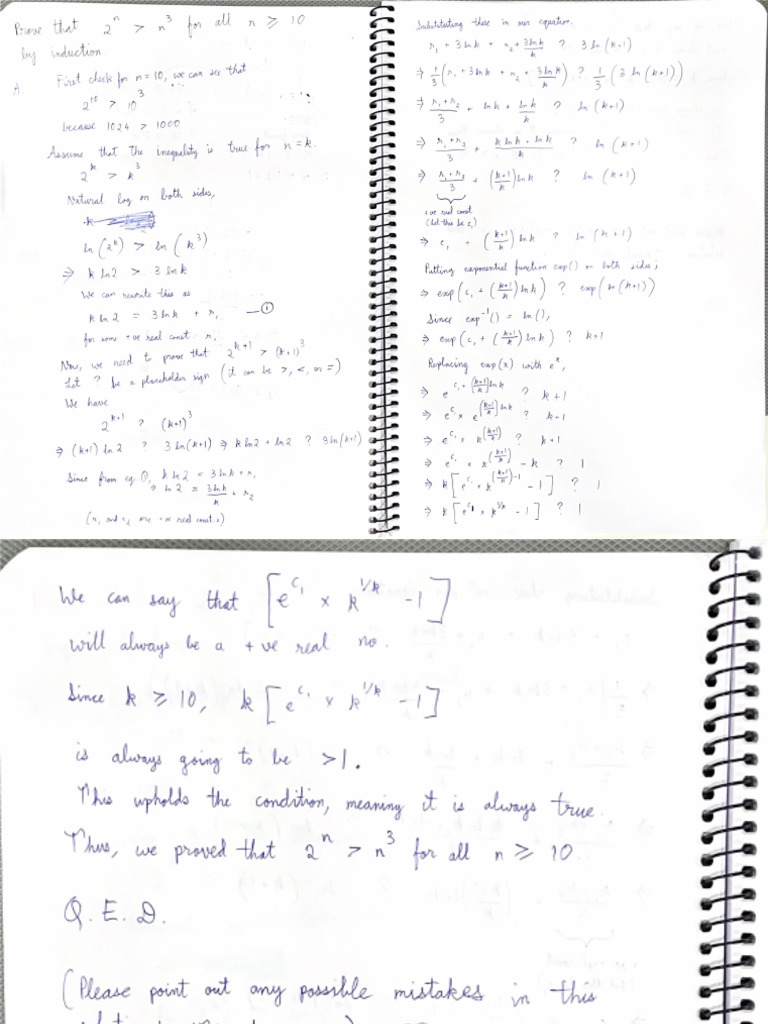 Prove that 2^n > n^3 for all n ≥ 10
by induction
A. First check for n=10, we can see that
2^10 > 10^3
because 1024 > 1000
Assume that the inequality is true for n=k.
2^k > k^3
Natural log on both sides,
ln(2^k) > ln(k^3)
⇒ k ln2 > 3 lnk
We can rewrite this as
k ln2 = 3 lnk + r₁ —①
for some +ve real const r₁
Now, we need to prove that 2^(k+1) > (k+1)^3
Let ? be a placeholder sign (it can be >, <, or =)
We have
2^(k+1) ? (k+1)^3
⇒ (k+1) ln2 ? 3 ln(k+1) ⇒ k ln2 + ln2 ? 3 ln(k+1)
Since from eq ①, k ln2 = 3 lnk + r₁
⇒ ln2 = 3lnk/k + r₂
(r₁ and r₂ are +ve real const.s)
Substituting these in our equation.
r₁ + 3 lnk + r₂ + 3lnk/k ? 3 ln(k+1)
⇒ 1/3 (r₁ + 3lnk + r₂ + 3lnk/k) ? 1/3 (3 ln(k+1))
⇒ (r₁+r₂)/3 + lnk + lnk/k ? ln(k+1)
⇒ (r₁+r₂)/3 + (k lnk + lnk)/k ? ln(k+1)
⇒ (r₁+r₂)/3 + ((k+1)/k) lnk ? ln(k+1)
+ve real const
(let this be c₁)
⇒ c₁ + ((k+1)/k) lnk ? ln(k+1)
Putting exponential function exp() on both sides;
⇒ exp(c₁ + ((k+1)/k) lnk) ? exp(ln(k+1))
Since exp⁻¹() = ln(),
⇒ exp(c₁ + ((k+1)/k) lnk) ? k+1
Replacing exp(x) with e^x,
⇒ e^(c₁ + ((k+1)/k) lnk) ? k+1
⇒ e^c₁ × e^(((k+1)/k) lnk) ? k+1
⇒ e^c₁ × k^((k+1)/k) ? k+1
⇒ e^c₁ × k^((k+1)/k) - k ? 1
⇒ k[e^c₁ × k^(((k+1)/k)-1) - 1] ? 1
⇒ k[e^c₁ × k^(1/k) - 1] ? 1
We can say that [e^c₁ × k^(1/k) - 1]
will always be a +ve real no.
Since k ≥ 10, k[e^c₁ × k^(1/k) - 1]
is always going to be >1.
This upholds the condition, meaning it is always true.
Thus, we proved that 2^n > n^3 for all n ≥ 10.
Q. E. D.
(Please point out any possible mistakes in this